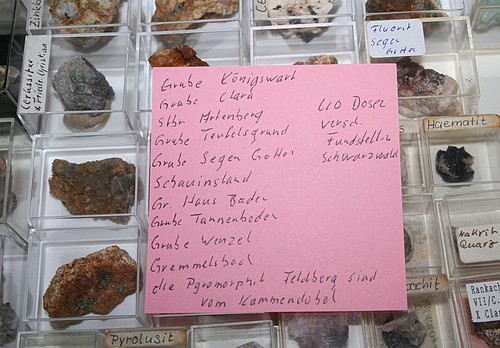 Zinkb
Cerussit
x Friedr. Christian
Fluorit
Segen
Gottes
Grube Königswart
Grube Clara
Stbr Artenberg
Grube Teufelsgrund
Grube Segen Gottes
Schauinsland
Gr. Haus Baden
Grube Tannenboden
Grube Wenzel
Gremmelsbach
die Pyromorphit Feldberg sind
vom Kammendobel
110 Dosen
versch.
Fundstellen
Schwarzwald
Haematit
Nakrit
Quarz
Rankach
VII/C
X Clar
Pyrolusit
chit